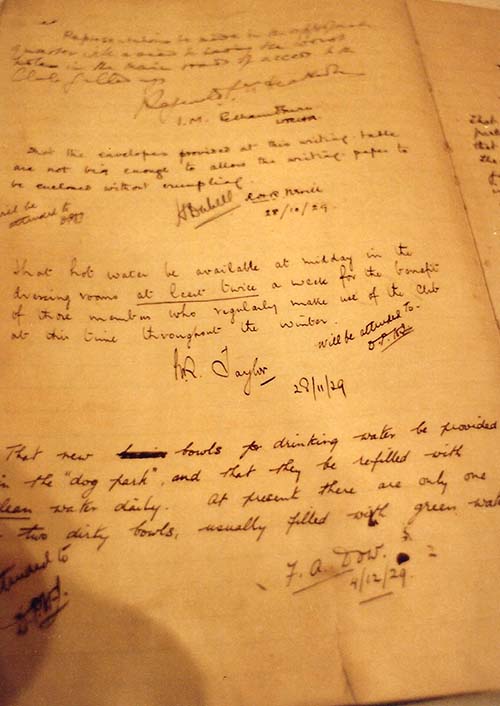 Representations be made in the
quarter with a view to having the worst
holes in the main roads of access to the
Club filled up
I. M.
That the envelopes provided at this writing table
are not big enough to allow the writing paper to
be enclosed without crumpling.
will be
attended to
28/10/29.
That hot water be available at midday in the
dressing rooms at least twice a week for the benefit
of those members who regularly make use of the Club
at this time throughout the winter.
will be attended to.
Taylor
28/11/29
That new bowls for drinking water be provided
in the "dog park", and that they be refilled with
clean water daily. At present there are only one
two dirty bowls, usually filled with green
attended to
F. A. Dow.
4/12/29.
That
that
The